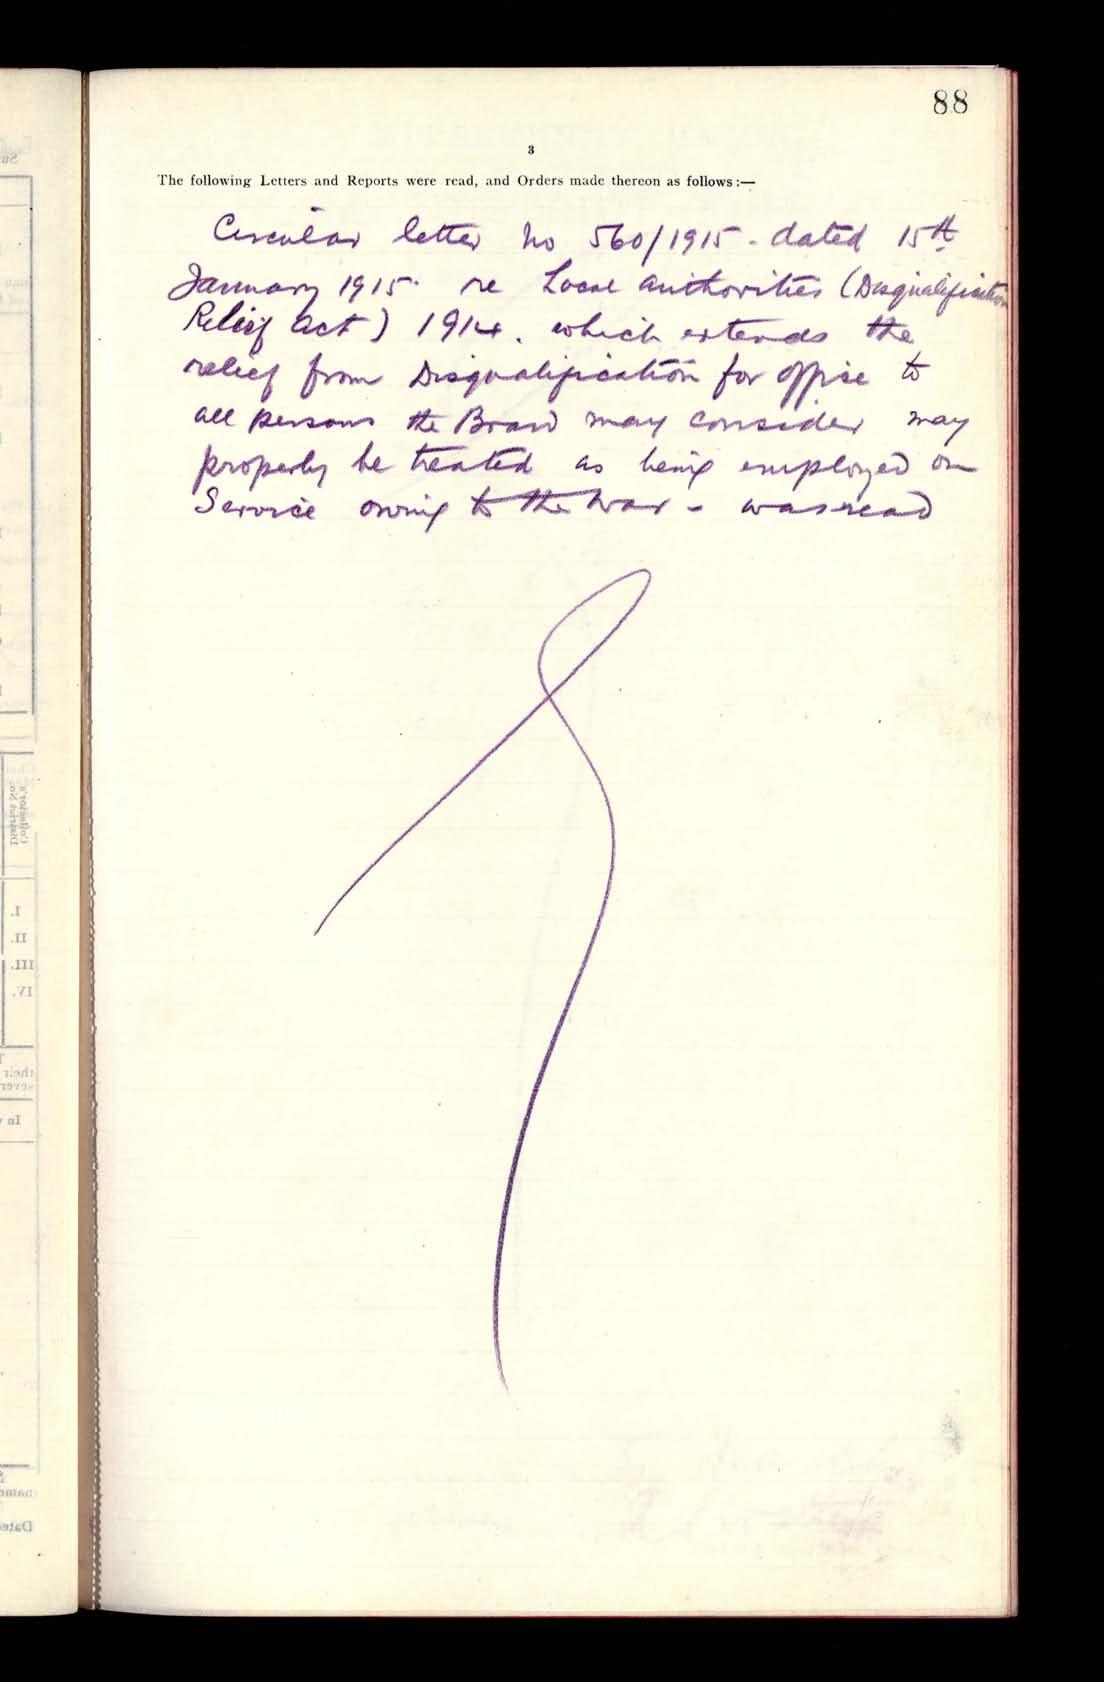 88
3
The following Letters and Reports were read, and Orders made thereon as follows:—
Circular letter No 560/1915 - dated 15th
January 1915. re Local Authorities (Disqualification
Relief Act) 1914. which extends the
relief from Disqualification for office to
all persons the Board may consider may
properly be treated as being employed on
Service owing to the War - was read
District No.
Collector's
I.
II.
III.
IV.
their
In
name
Date